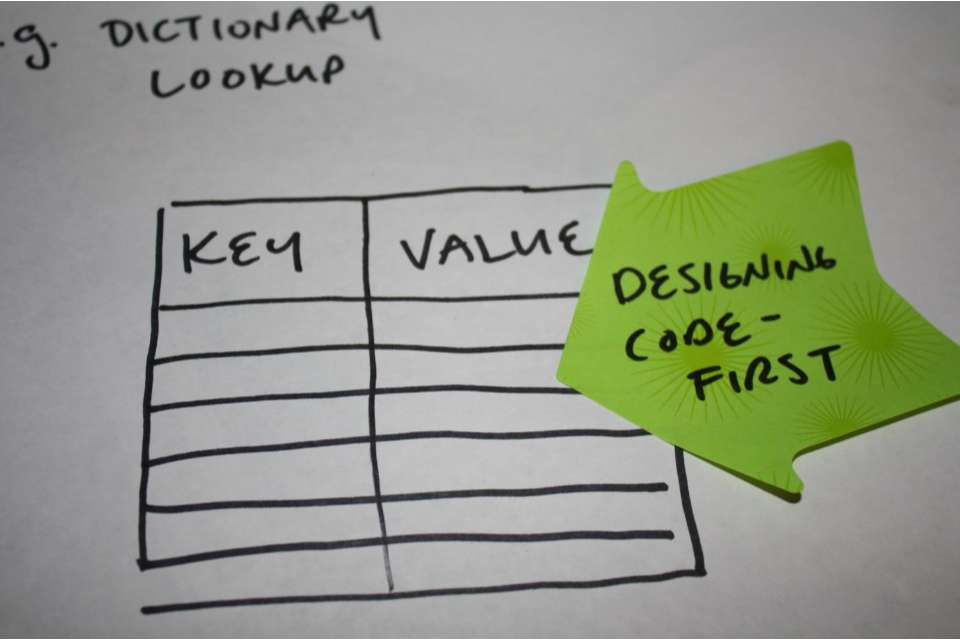 .g. DICTIONARY
LOOKUP
KEY VALUE
DESIGNING
CODE-
FIRST